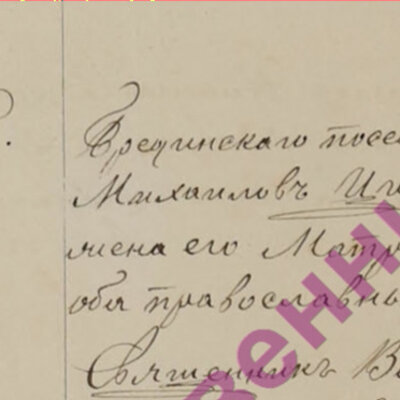 Брединскаго посе
Михаиловъ Иг
жена его Матр
оба православны
Священникъ В